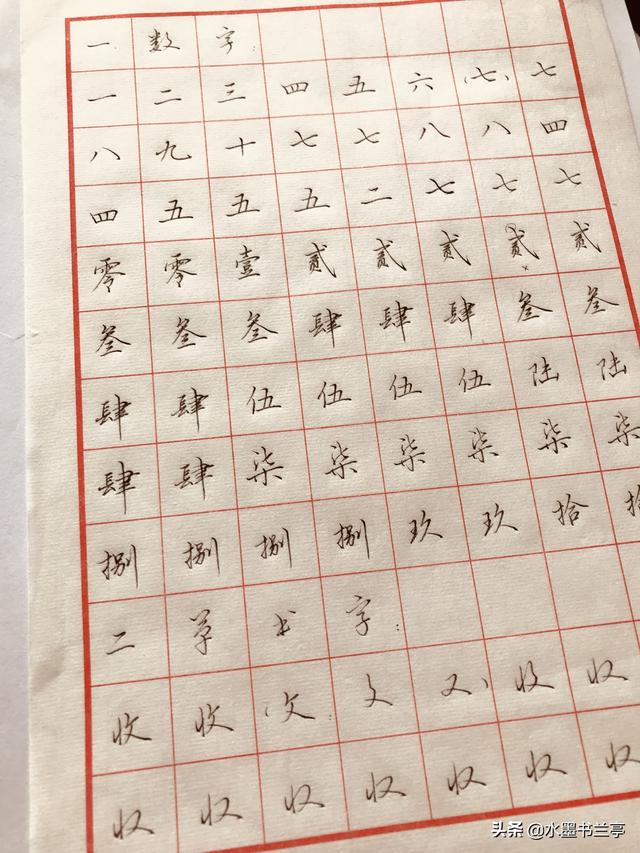 一数字
一二三四五六(七)七
八九十七七八八四
四五五五二七七七
零零壹贰贰贰贰贰
叁叁叁肆肆肆叁叁
肆肆伍伍伍伍陆陆
肆肆柒柒柒柒柒柒
捌捌捌捌玖玖拾拾
二草书字:
收收(攵攵又)收收
收收收收收收收
头条 @水墨书兰亭